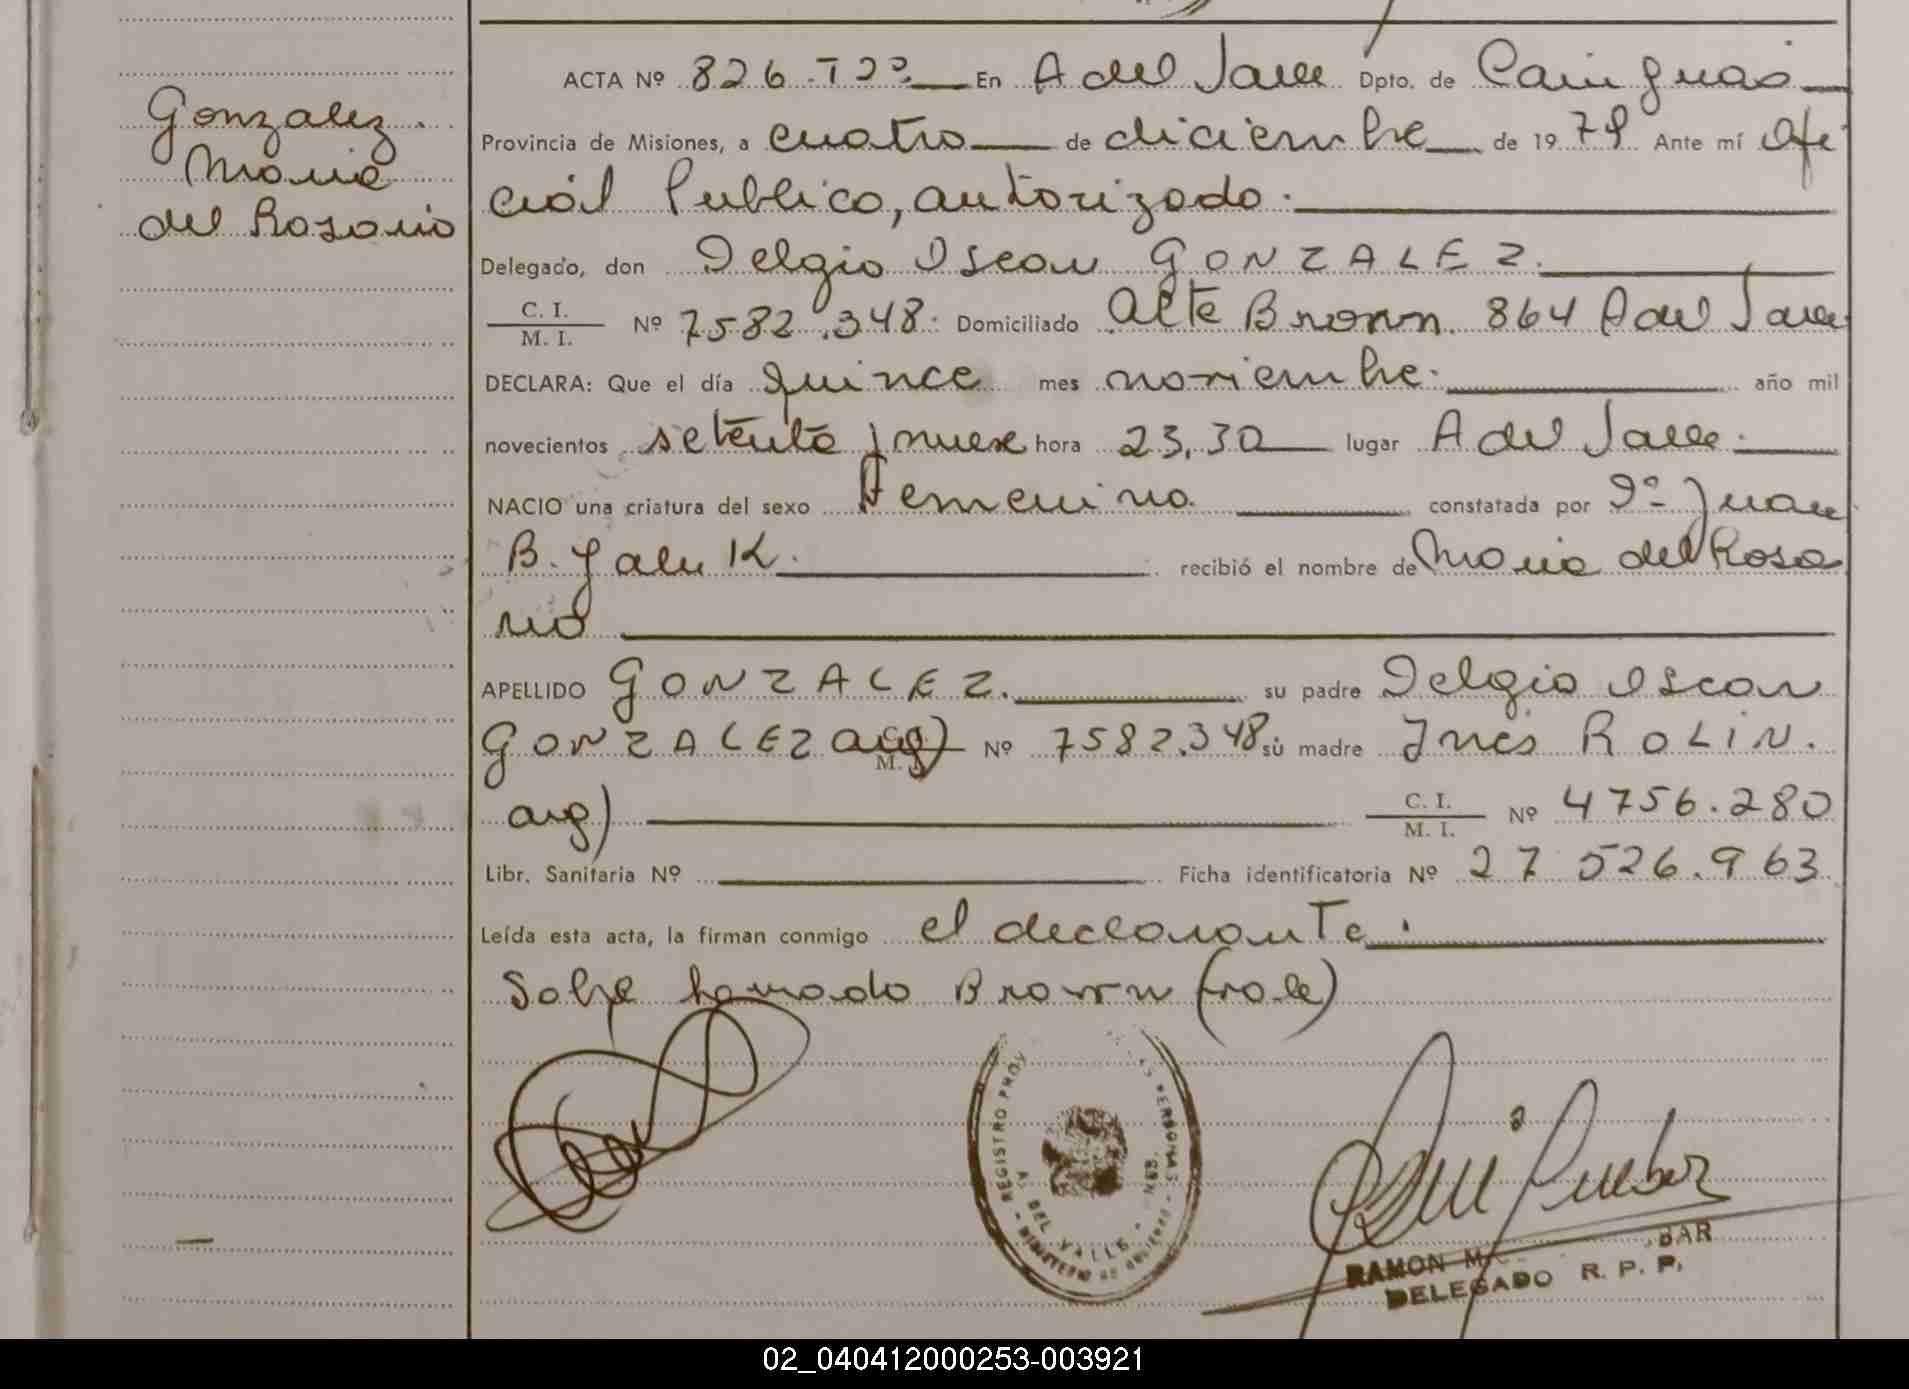 Gonzalez.
Maria
del Rosario
ACTA Nº 826 - T 2º En A del Valle Dpto. de Cainguas
Provincia de Misiones, a cuatro de diciembre de 1979 Ante mí Ofi
cial Publico, autorizado.
Delegado, don Delgio Oscar GONZALEZ.
C. I.
M. I. Nº 7582.348. Domiciliado Alte Brown. 864 A del Valle
DECLARA: Que el día quince mes noviembre. año mil
novecientos setenta y nueve hora 23,30 lugar A del Valle.
NACIO una criatura del sexo Femenino constatada por Dº Juan
B. Yaluk. recibió el nombre de Maria del Rosa
rio
APELLIDO GONZALEZ. su padre Delgio Oscar
GONZALEZ arg) Nº 7582.348 su madre Inés ROLIN.
arg) C. I. M. I. Nº 4756.280
Libr. Sanitaria Nº Ficha identificatoria Nº 27 526.963
Leída esta acta, la firman conmigo el declarante.
Sobre borrado Brown (vale)
REGISTRO PROV PERSONAS
A. DEL VALLE - MNES.
MINISTERIO DE GOBIERNO
RAMON M BAR
DELEGADO R. P. P.
02_040412000253-003921